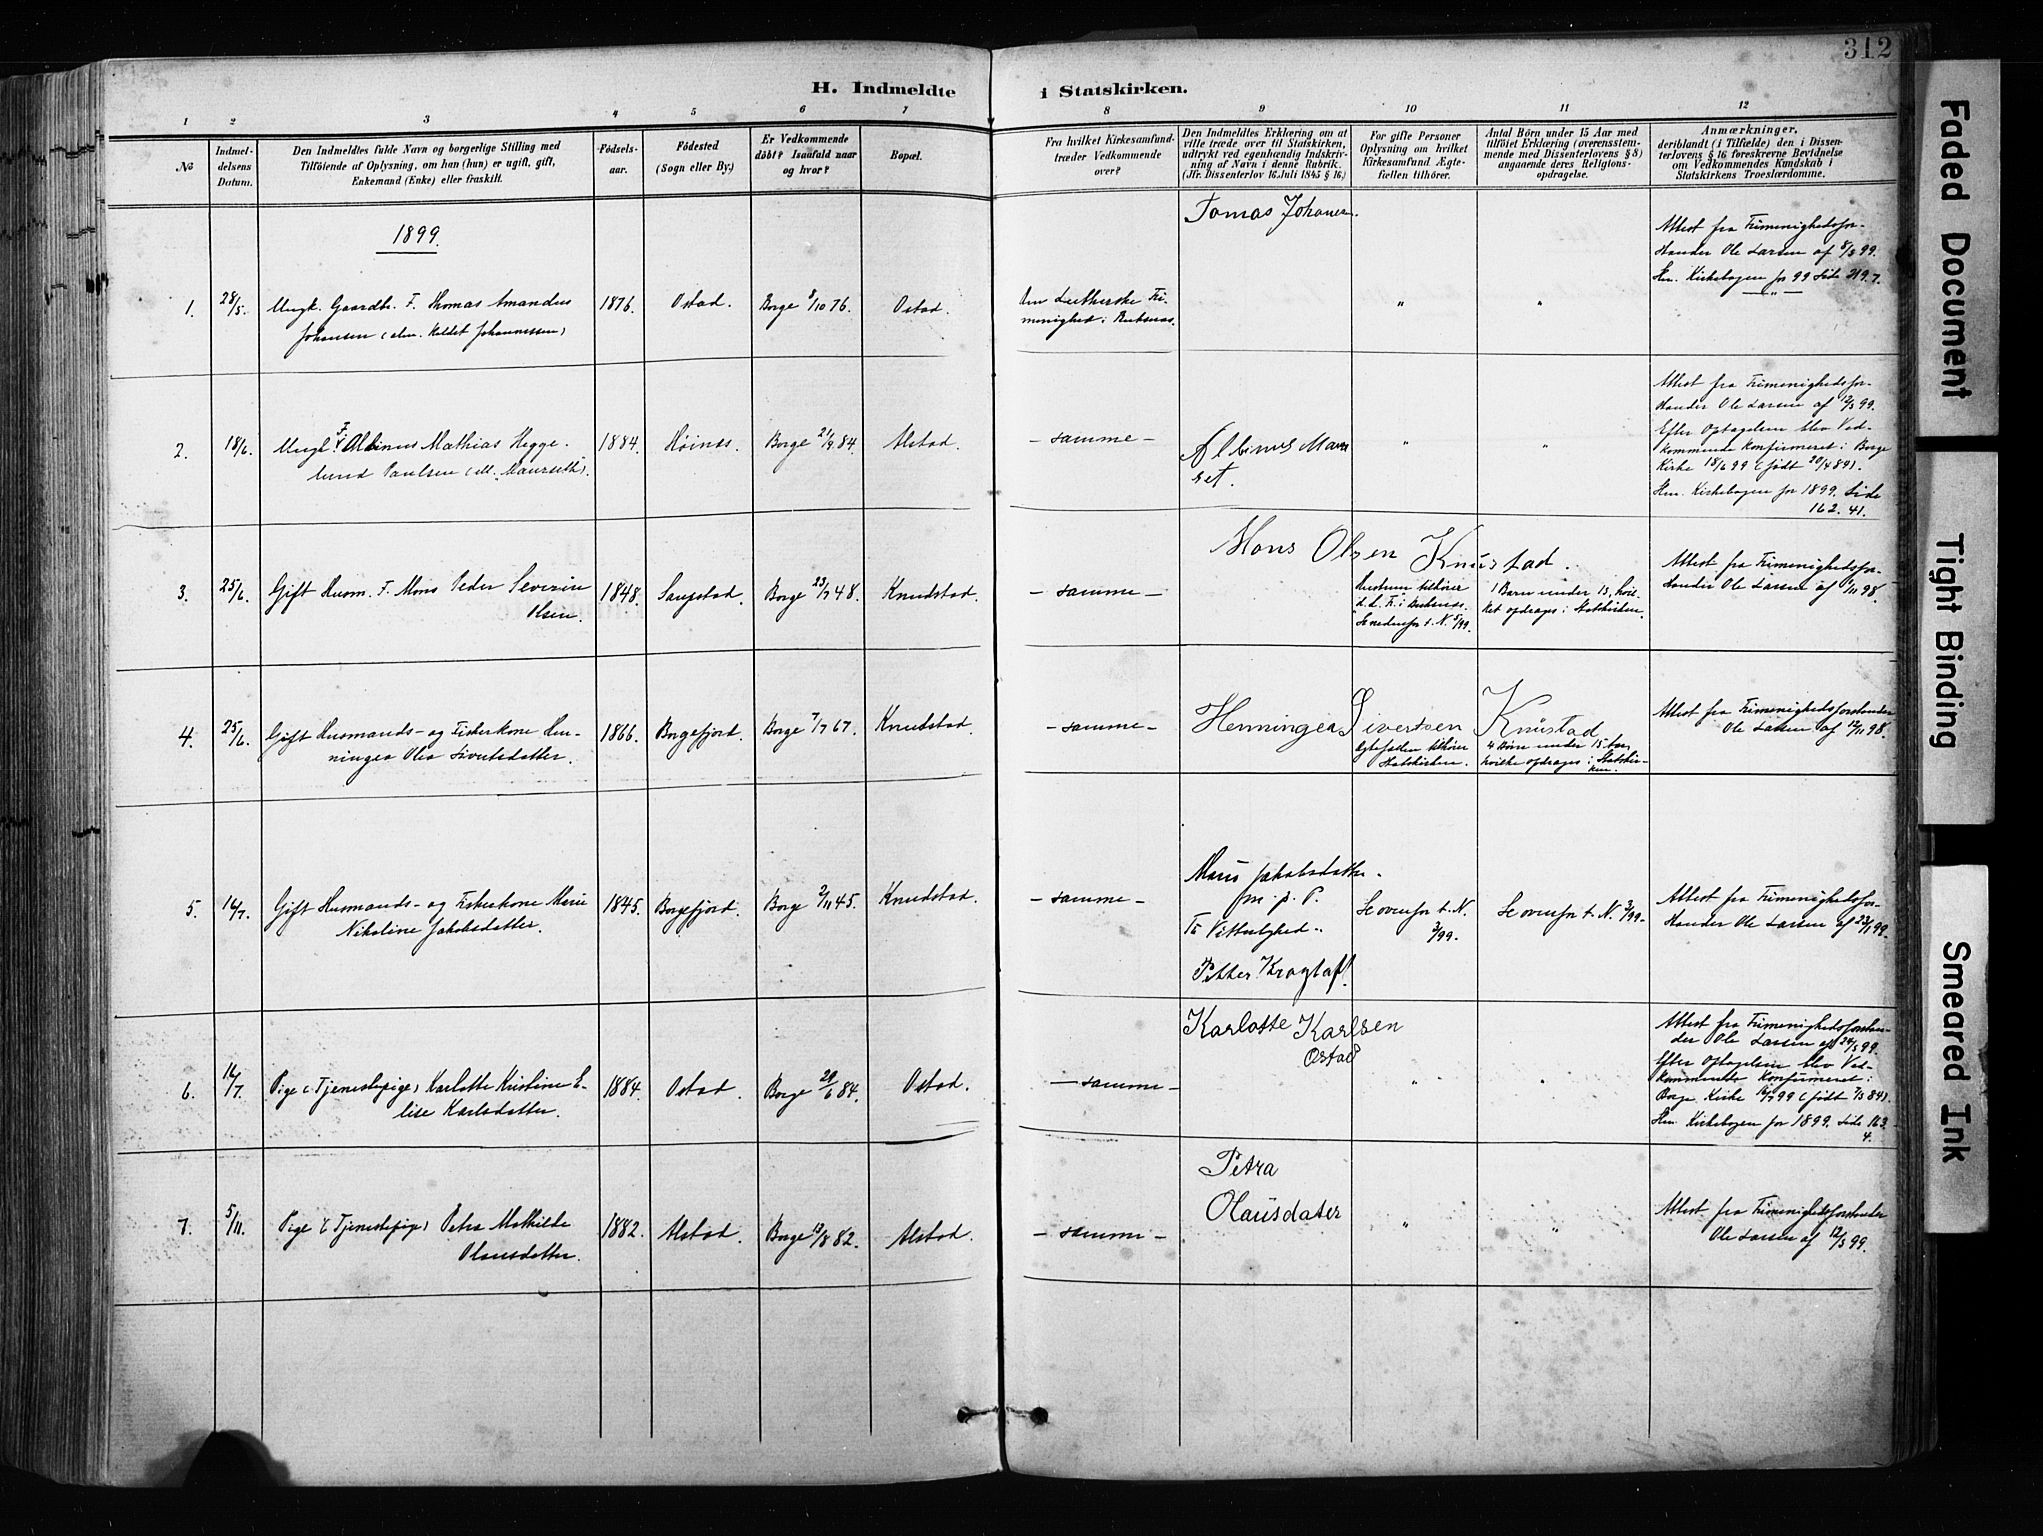 312
H. Indmeldte i Statskirken.
1 2 3 4 5 6 7 8 9 10 11 12
No
Indmeldelsens Datum.
Den Indmeldtes fulde Navn og borgerlige Stilling med
Tilföiende af Oplysning, om han (hun) er ugift, gift,
Enkemand (Enke) eller fraskilt.
Födselsaar.
Födested
(Sogn eller By.)
Er Vedkommende
döbt? Isaafald naar
og hvor?
Bopæl.
Fra hvilket Kirkesamfund
træder Vedkommende
over?
Den Indmeldtes Erklæring om at
ville træde over til Statskirken,
udtrykt ved egenhændig Indskriv-
ning af Navn i denne Rubrik.
(Jfr. Dissenterlov 16 Juli 1845 § 16.)
For gifte Personer
Oplysning om hvilket
Kirkesamfund Ægte-
fællen tilhörer.
Antal Börn under 15 Aar med
tilföiet Erklæring (overensstem-
mende med Dissenterlovens § 8)
angaaende deres Religions-
opdragelse.
Anmærkninger,
deriblandt (i Tilfælde) den i Dissen-
terlovens § 16 foreskrevne Bevidnelse
om Vedkommendes Kundskab i
Statskirkens Troeslærdomme.
1899.
1. 28/5. Ungk. Gaardbr. F. Thomas Amandus
Johansen (alm. kaldet Johannessen)
1876. Ostad. Borge 8/10 76. Ostad.
Den Lutherske Fri-
menighed i Buksnæs.
Tomas Johansen.
" "
Attest fra Frimenighedsfor-
stander Ole Larsen af 8/3 99.
Sm. Kirkebogen for 99 Side 219.7.
2. 18/6. Ungk. F. Albinus Mathias Hegge-
lund Paulsen (ell. Maurseth).
1884. Höines. Borge 21/9 84. Alstad.
- samme -
Albinus Maur
set.
" "
Attest fra Frimenighedsfor-
stander Ole Larsen af 12/3 99.
Efter Optagelsen blev Ved-
kommende konfirmeret i Borge
Kirke 18/6 99 (födt 20/4 84).
Sm. Kirkebogen for 1899. Side
162. 41.
3. 25/6. Gift Husm. F. Mons Peder Severin
Olsen.
1848. Saupstad. Borge 23/7 48. Knudstad.
- samme -
Mons Olsen Knustad.
Hustruen tilhörer
d. L. F. i Buksnæs.
Se nedenfor t. N. 5/99.
1 Barn under 15, hvil-
ket opdrages i Statskirken.
Attest fra Frimenighedsfor-
stander Ole Larsen af 1/11 98.
4. 25/6. Gift Husmands- og Fiskerkone Hen-
ningea Olea Sivertsdatter.
1866. Borgefjord. Borge 7/7 67. Knudstad.
- samme -
Henningea Sivertsen Knustad
Egtefællen tilhörer
Statskirken.
4 Börn under 15 Aar,
hvilke opdrages i Statskir-
ken.
Attest fra Frimenighedsforstander
Ole Larsen af 12/11 98.
5. 16/7. Gift Husmands- og Fiskerkone Marie
Nikoline Jakobsdatter.
1845. Borgefjord. Borge 2/11 45. Knudstad.
- samme -
Maris Jakobsdatter.
m. p. P.
Til Vitterlighed..
Petter
Se ovenfor t. N.
3/99.
Se ovenfor t. N. 3/99.
Attest fra Frimenighedsfor-
stander Ole Larsen af 23/1 99.
6. 16/7. Pige (Tjenestepige) Karlotte Kristine E-
lise Karlsdatter.
1884. Ostad. Borge 29/6 84. Ostad.
- samme -
Karlotte Karlsen
Ostad
" "
Attest fra Frimenighedsforstan-
der Ole Larsen af 24/5 99.
Efter Optagelsen blev Ved-
kommende Konfirmeret i
Borge Kirke 16/7 99 (födt 7/5 84).
Sm. Kirkebogen for 1899. Side 163.
4.
7. 5/11. Pige (Tjenestepige) Petra Mathilde
Olausdatter.
1882. Alstad. Borge 13/8 82. Alstad.
- samme -
Petra
Olausdater
" "
Attest fra Frimenighedsforstander
Ole Larsen af 12/3 99.
Faded Document
Tight Binding
Smeared Ink